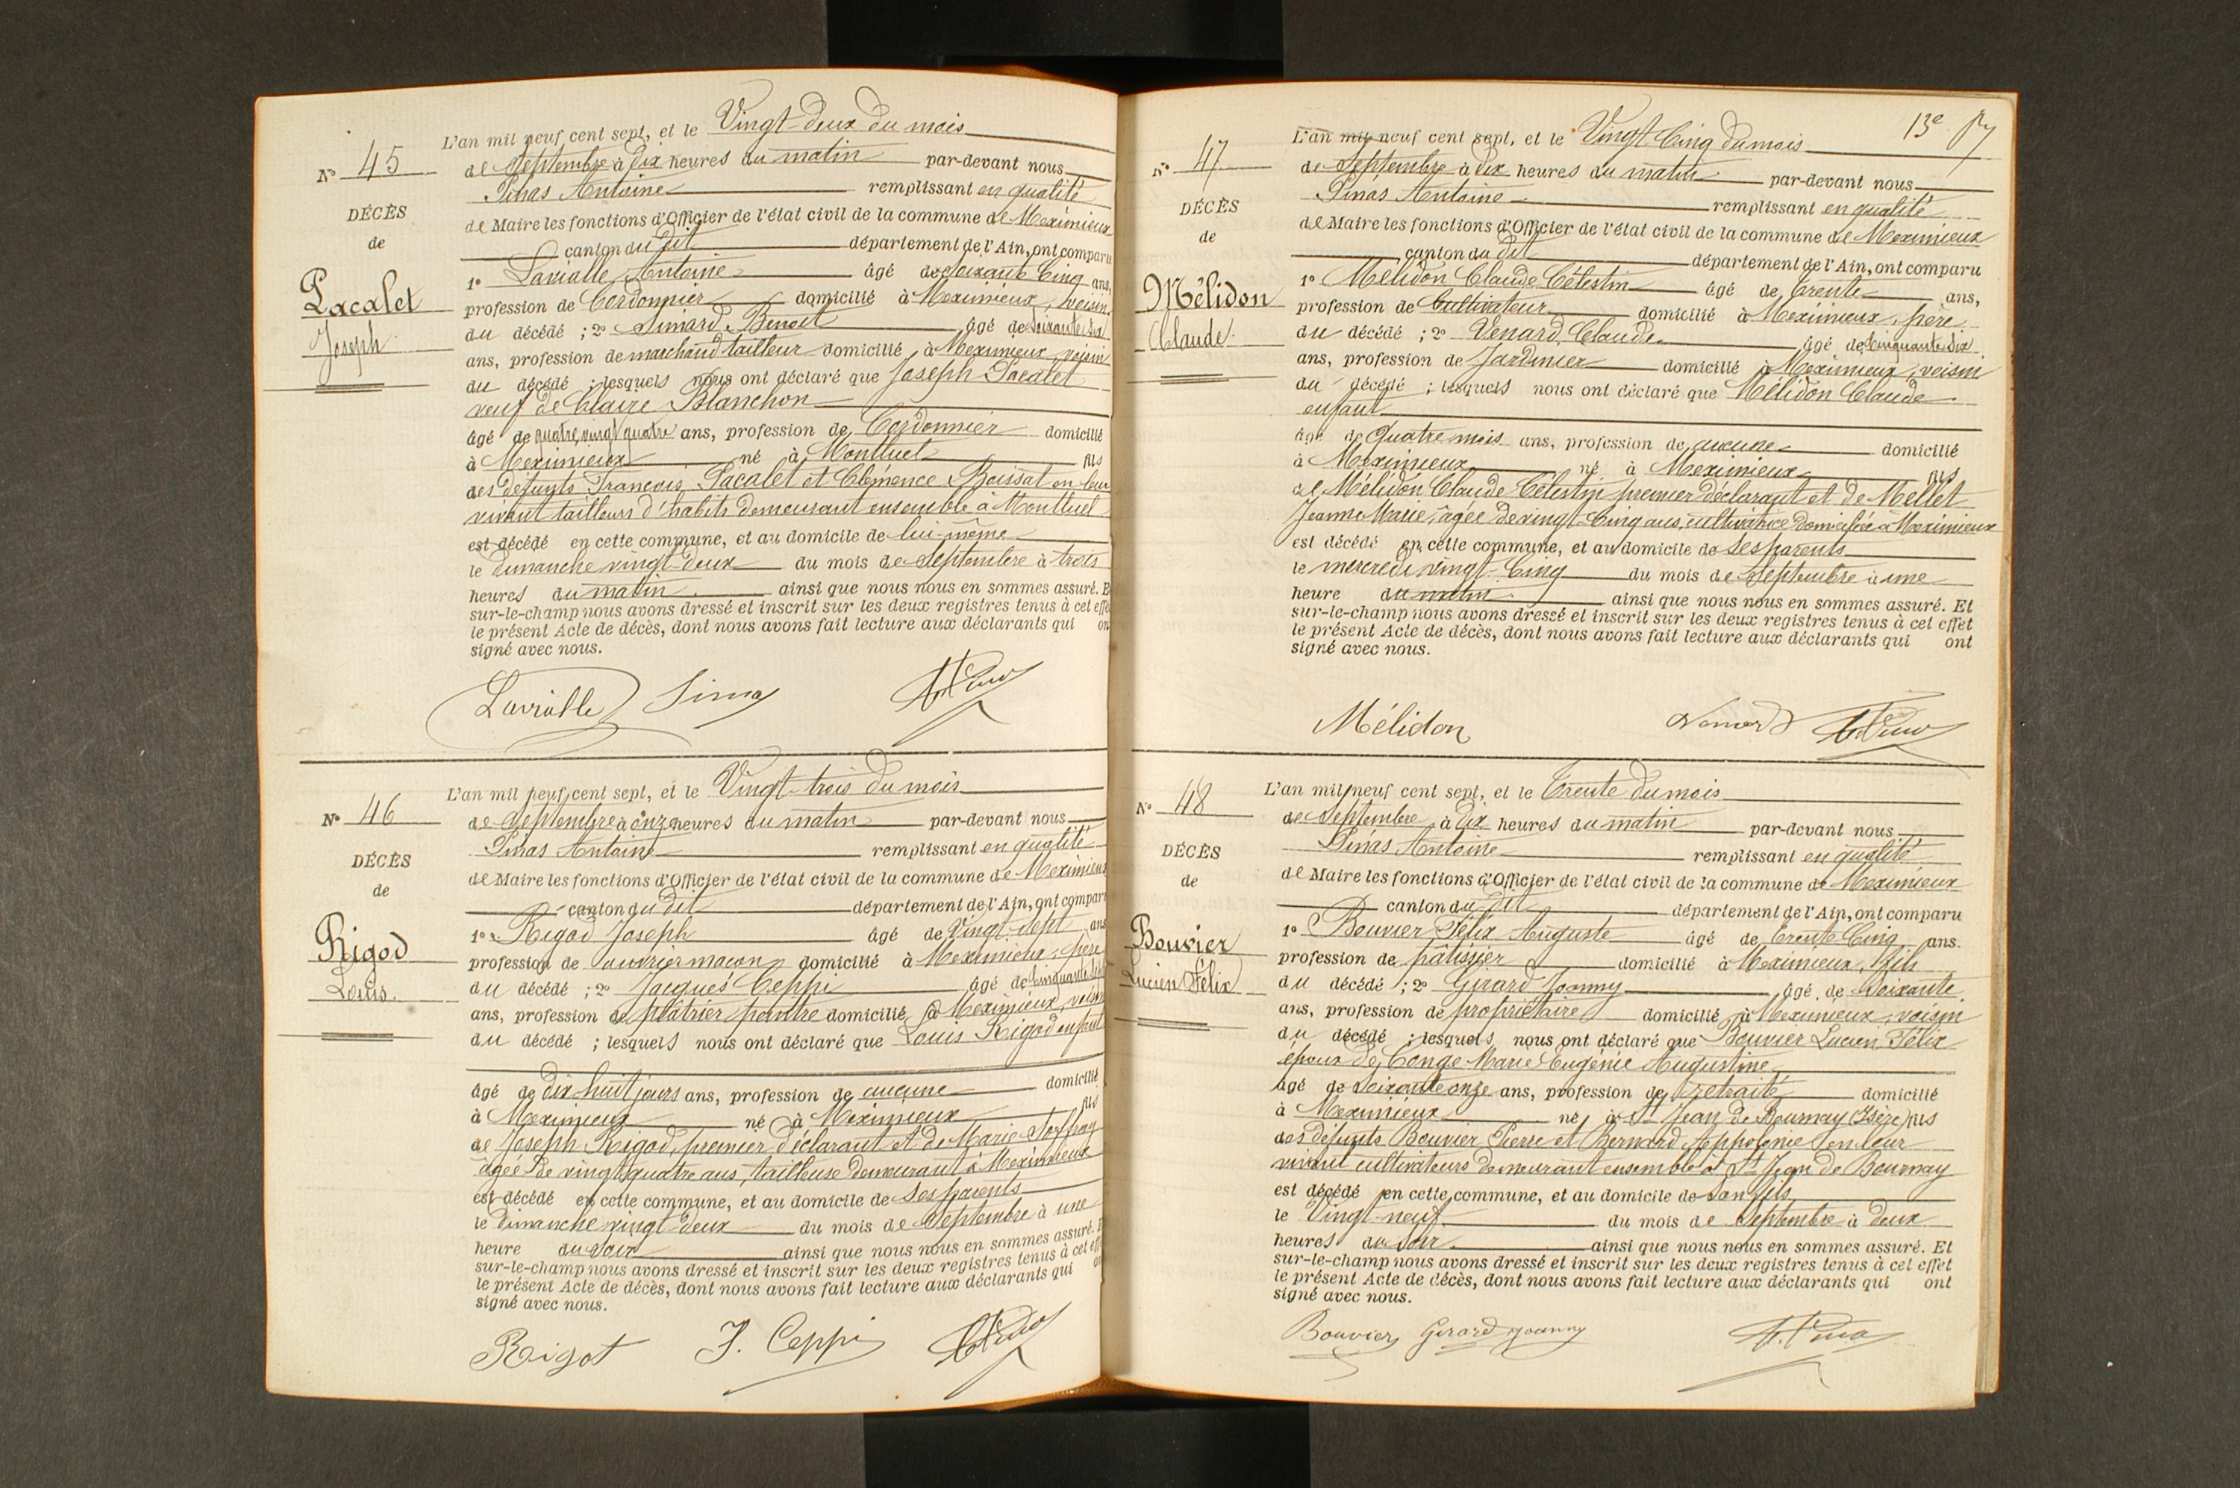 N° 45
DÉCÈS
de
Pacalet
Joseph
L'an mil neuf cent sept, et le Vingt-deux du mois
de Septembre à dix heures du matin par-devant nous
Pinas Antoine remplissant en qualité
de Maire les fonctions d'Officier de l'état civil de la commune de Meximieux
canton du dit département de l'Ain, ont comparu
1° Lavialle Antoine âgé de soixante Cinq ans,
profession de Cordonnier domicilié à Meximieux, voisin
du décédé ; 2° Simard Benoit âgé de soixante six
ans, profession de marchand tailleur domicilié à Meximieux voisin
du décédé ; lesquels nous ont déclaré que Joseph Pacalet
veuf de Claire Blanchon
âgé de quatre vingt quatre ans, profession de Cordonnier domicilié
à Meximieux né à Montluel fils
des défunts François Pacalet et Clémence Boissat en leur
vivant tailleurs d'habits demeurant ensemble à Montluel
est décédé en cette commune, et au domicile de lui-même
le dimanche vingt-deux du mois de Septembre à trois
heures du matin ainsi que nous nous en sommes assuré. E
sur-le-champ nous avons dressé et inscrit sur les deux registres tenus à cet effe
le présent Acte de décès, dont nous avons fait lecture aux déclarants qui on
signé avec nous.
Lavialle
N° 46
DÉCÈS
de
Rigod
Louis
L'an mil neuf cent sept, et le Vingt-trois du mois
de Septembre à onze heures du matin par-devant nous
Pinas Antoine remplissant en qualité
de Maire les fonctions d'Officier de l'état civil de la commune de Meximieux
canton du dit département de l'Ain, ont compar
1° Rigod Joseph âgé de Vingt-sept ans
profession de ouvrier maçon domicilié à Meximieux, père
du décédé ; 2° Jacques Ceppi âgé de cinquante
ans, profession de plâtrier peintre domicilié à Meximieux, voisin
du décédé ; lesquels nous ont déclaré que Louis Rigod enfant
âgé de dix-huit jours ans, profession de aucune domicilié
à Meximieux né à Meximieux fils
de Joseph Rigod, premier déclarant et de Marie
âgée de vingt quatre ans, tailleuse demeurant à Meximieux
est décédé en cette commune, et au domicile de ses parents
le dimanche vingt-deux du mois de Septembre à une
heure du soir ainsi que nous nous en sommes assuré. E
sur-le-champ nous avons dressé et inscrit sur les deux registres tenus à cet eff
le présent Acte de décès, dont nous avons fait lecture aux déclarants qui on
signé avec nous.
Rigot J. Ceppi
13e
N° 47
DÉCÈS
de
Mélidon
Claude
L'an mil neuf cent sept, et le Vingt Cinq du mois
de Septembre à dix heures du matin par-devant nous
Pinas Antoine remplissant en qualité
de Maire les fonctions d'Officier de l'état civil de la commune de Meximieux
canton du dit département de l'Ain, ont comparu
1° Mélidon Claude Célestin âgé de trente ans,
profession de Cultivateur domicilié à Meximieux, père
du décédé ; 2° Venard Claude âgé de Cinquante six
ans, profession de Jardinier domicilié à Meximieux, voisin
du décédé ; lesquels nous ont déclaré que Mélidon Claude
enfant
âgé de quatre mois ans, profession de aucune domicilié
à Meximieux né à Meximieux fils
de Mélidon Claude Célestin premier déclarant et de Mellet
Jeanne Marie, âgée de vingt-Cinq ans, cultivatrice domiciliée à Meximieux
est décédé en cette commune, et au domicile de ses parents
le mercredi vingt Cinq du mois de Septembre à une
heure du matin ainsi que nous nous en sommes assuré. Et
sur-le-champ nous avons dressé et inscrit sur les deux registres tenus à cet effet
le présent Acte de décès, dont nous avons fait lecture aux déclarants qui ont
signé avec nous.
Mélidon Venard
N° 48
DÉCÈS
de
Bouvier
Lucien Félix
L'an mil neuf cent sept, et le Trente du mois
de Septembre à dix heures du matin par-devant nous
Pinas Antoine remplissant en qualité
de Maire les fonctions d'Officier de l'état civil de la commune de Meximieux
canton du dit département de l'Ain, ont comparu
1° Bouvier Félix Auguste âgé de trente Cinq ans.
profession de pâtissier domicilié à Meximieux, fils
du décédé ; 2° Girard Joanny âgé de soixante
ans, profession de propriétaire domicilié à Meximieux, voisin
du décédé ; lesquels nous ont déclaré que Bouvier Lucien Félix
époux de Conge Marie Eugénie Augustine
âgé de soixante onze ans, profession de retraité domicilié
à Meximieux né à St Jean de Bournay (Isère) fils
des défunts Bouvier Pierre et Bernard Appolonie en leur
vivant cultivateurs demeurant ensemble à St Jean de Bournay
est décédé en cette commune, et au domicile de son fils
le Vingt-neuf du mois de Septembre à deux
heures du soir ainsi que nous nous en sommes assuré. Et
sur-le-champ nous avons dressé et inscrit sur les deux registres tenus à cet effet
le présent Acte de décès, dont nous avons fait lecture aux déclarants qui ont
signé avec nous.
Bouvier Girard Joanny